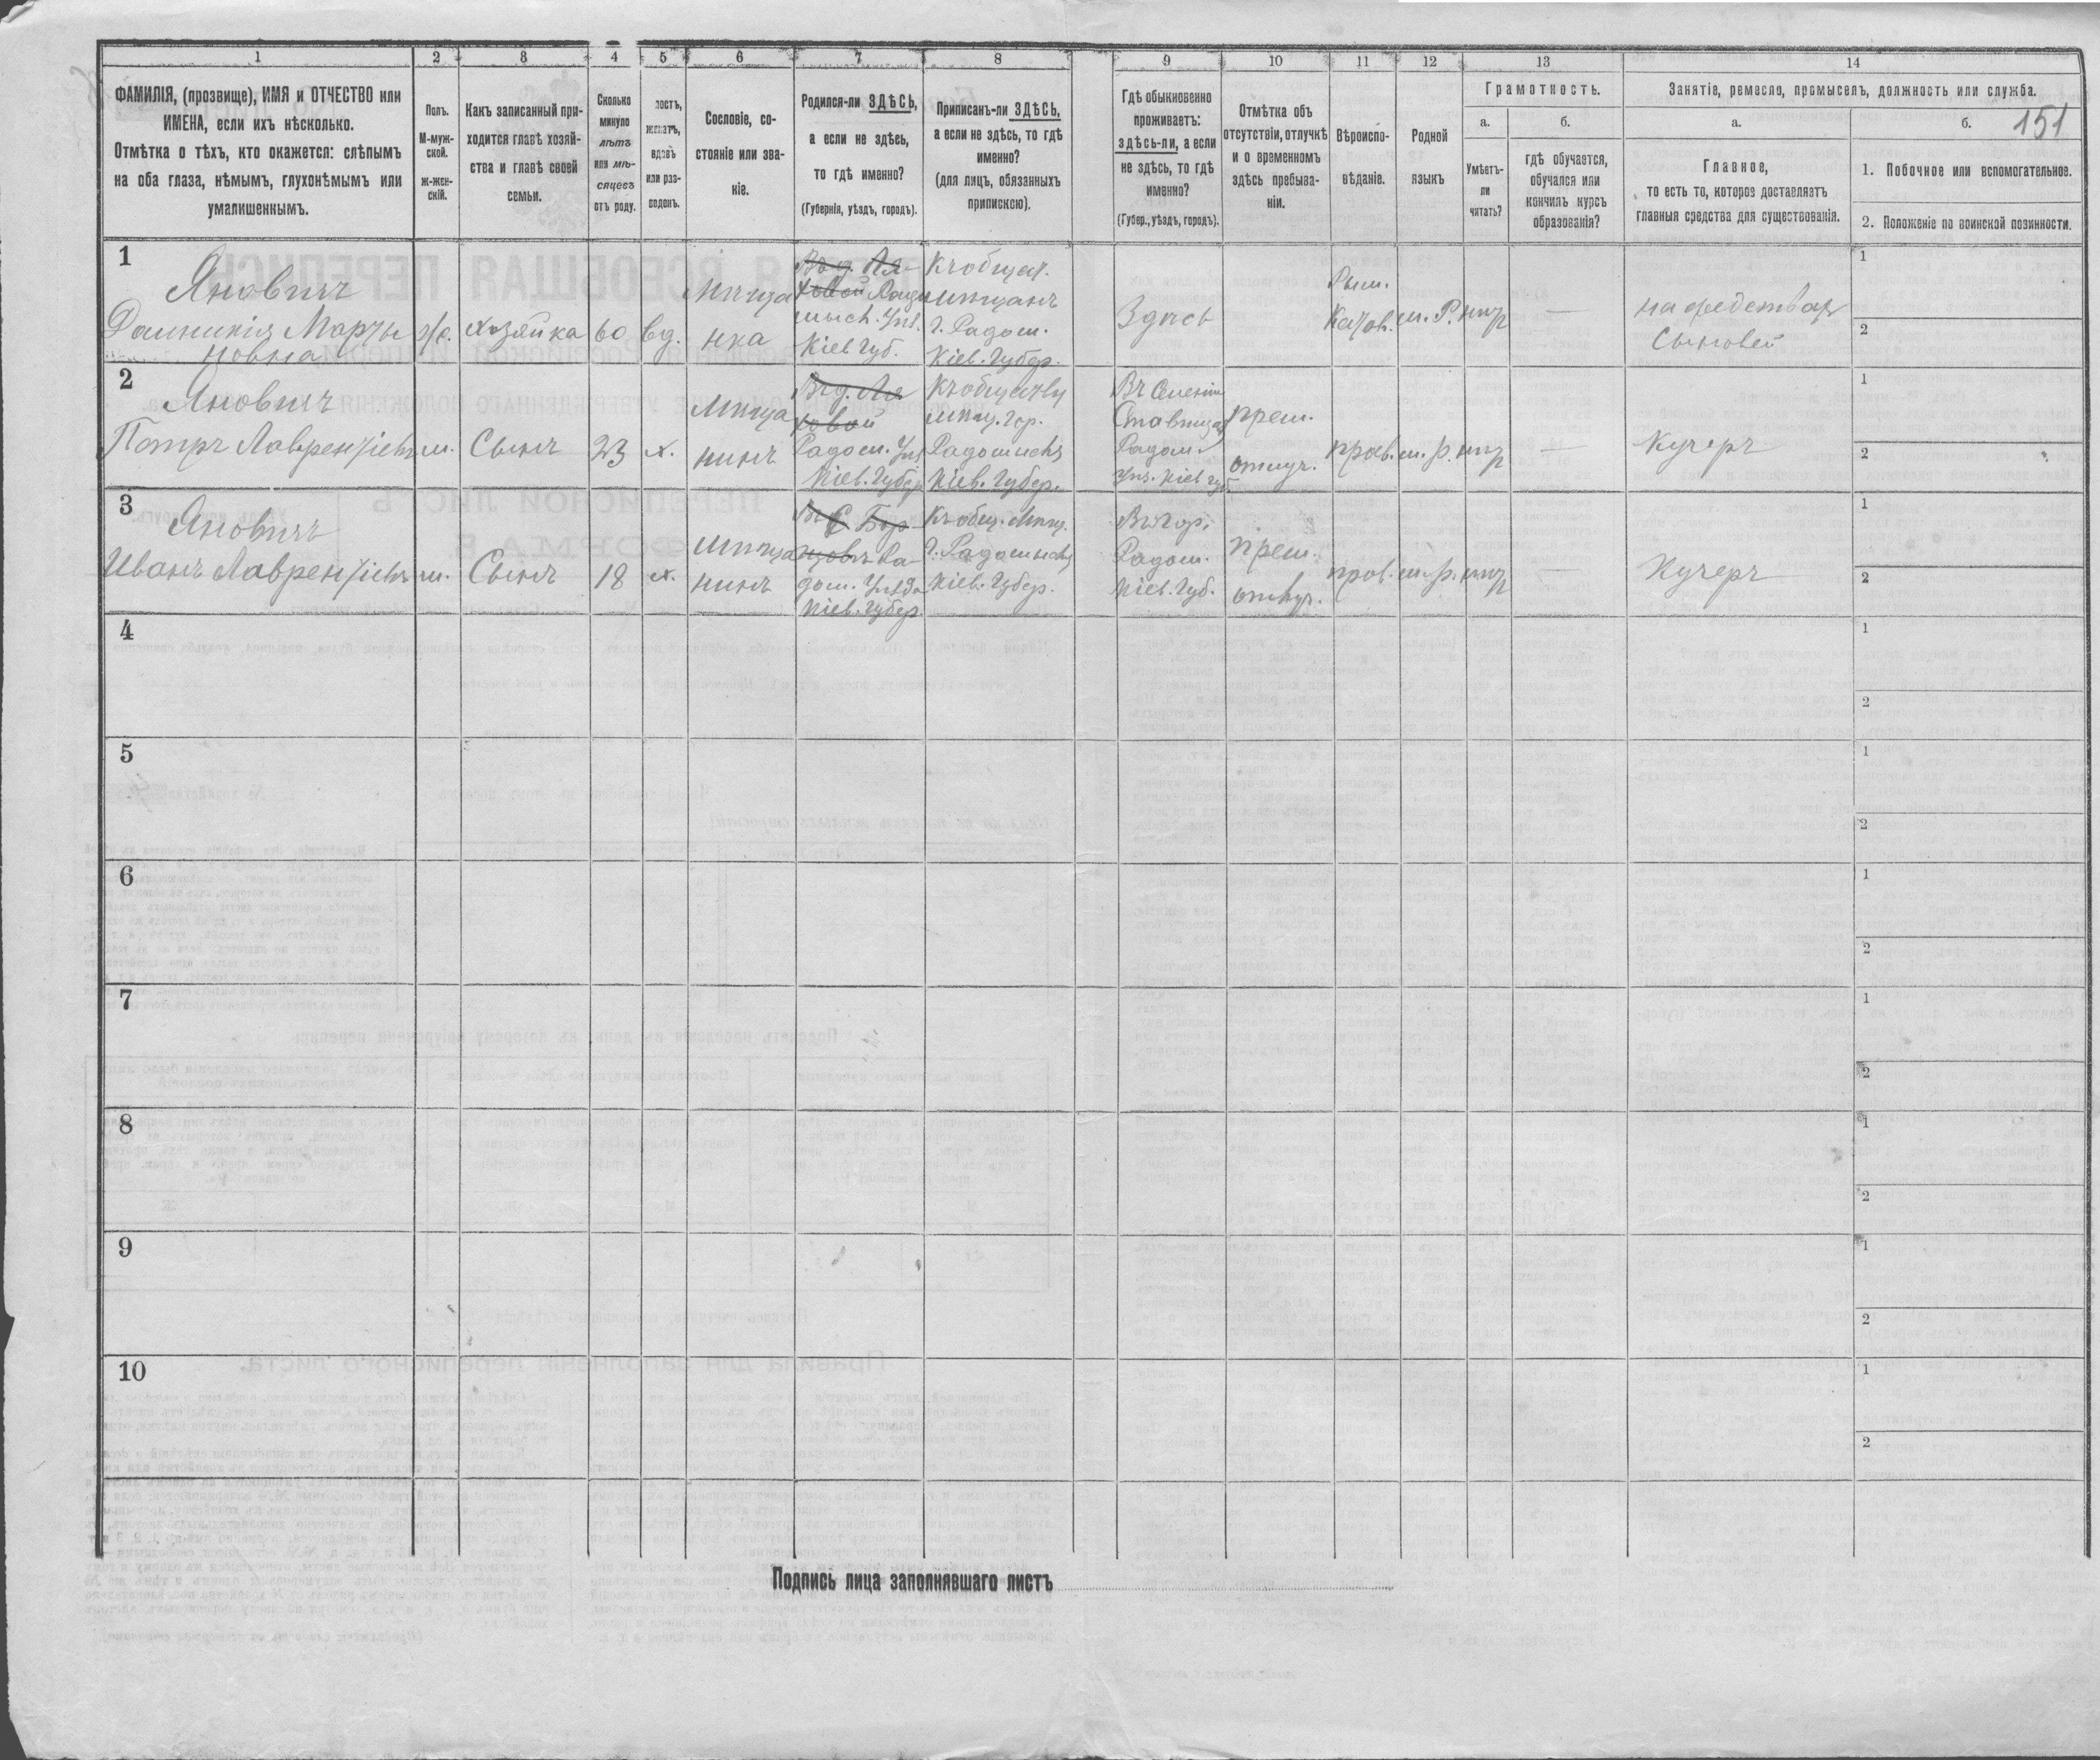 1 2 3 4 5 6 7 8 9 10 11 12 13 14
ФАМИЛІЯ, (прозвище), ИМЯ и ОТЧЕСТВО или
ИМЕНА, если ихъ нѣсколько.
Отмѣтка о тѣхъ, кто окажется: слѣпымъ
на оба глаза, нѣмымъ, глухонѣмымъ или
умалишеннымъ.
Полъ.
М-муж-
ской.
ж-жен-
скій.
Какъ записанный при-
ходится главѣ хозяй-
ства и главѣ своей
семьи.
Сколько
минуло
лѣтъ
или мѣ-
сяцевъ
отъ роду.
лостъ,
женатъ,
вдовъ
или раз-
веденъ.
Сословіе, со-
стояніе или зва-
ніе.
Родился-ли ЗДѢСЬ,
а если не здѣсь,
то гдѣ именно?
(Губернія, уѣздъ, городъ).
Приписанъ-ли ЗДѢСЬ,
а если не здѣсь, то гдѣ
именно?
(для лицъ, обязанныхъ
припискою).
Гдѣ обыкновенно
проживаетъ:
здѣсь-ли, а если
не здѣсь, то гдѣ
именно?
(Губер., уѣздъ, городъ).
Отмѣтка объ
отсутствіи, отлучкѣ
и о временномъ
здѣсь пребыва-
ніи.
Вѣроиспо-
вѣданіе.
Родной
языкъ
Грамотность.
а.
Умѣетъ-
ли
читать?
б.
гдѣ обучается,
обучался или
кончилъ курсъ
образованія?
Занятіе, ремесло, промыселъ, должность или служба.
а.
Главное,
то есть то, которое доставляетъ
главныя средства для существованія.
б.
151
1. Побочное или вспомогательное.
2. Положеніе по воинской повинности.
1
Яновичъ
Домникія Марты
новна
ж.
хозяйка
60
вд.
Мѣща
нка
Радо
мысл. Уѣз.
Кіев Губ.
Къ общест.
мѣщанъ
г. Радом.
Кіев. Губер.
Здѣсь
Рим.
Катол.
м. р.
нѣтъ
—
на средствахъ
Сыновей
1
2
2
Яновичъ
Петръ Лаврентіевъ
м.
Сынъ
23
х.
Мѣща
нинъ
Радом. Уѣз.
Кіев. Губер.
Къ обществу
мѣщ. гор.
Радомысль
Кіев. Губер.
Въ Селеніи
Ставищахъ
Радом.
Уѣз. Кіев губ.
врем.
отлуч.
прав.
м. р.
нѣтъ
—
Кучеръ
1
2
3
Яновичъ
Иванъ Лаврентіевъ
м.
Сынъ
18
х.
Мѣща
нинъ
Ра
дом. Уѣзда
Кіев. Губер.
Къ общ. Мѣщ.
г. Радомысль
Кіев. Губер.
Въ гор.
Радом.
Кіев. Губ.
врем.
отлуч.
прав.
м. р.
нѣтъ
—
Кучеръ
1
2
4
1
2
5
1
2
6
1
2
7
1
2
8
1
2
9
1
2
10
1
2
Подпись лица заполнявшаго листъ